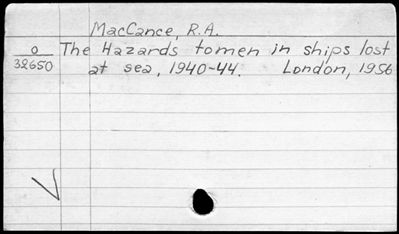 MacCance, R.A.
o The Hazards to men in ships lost
32650 at sea, 1940-44. London, 1956